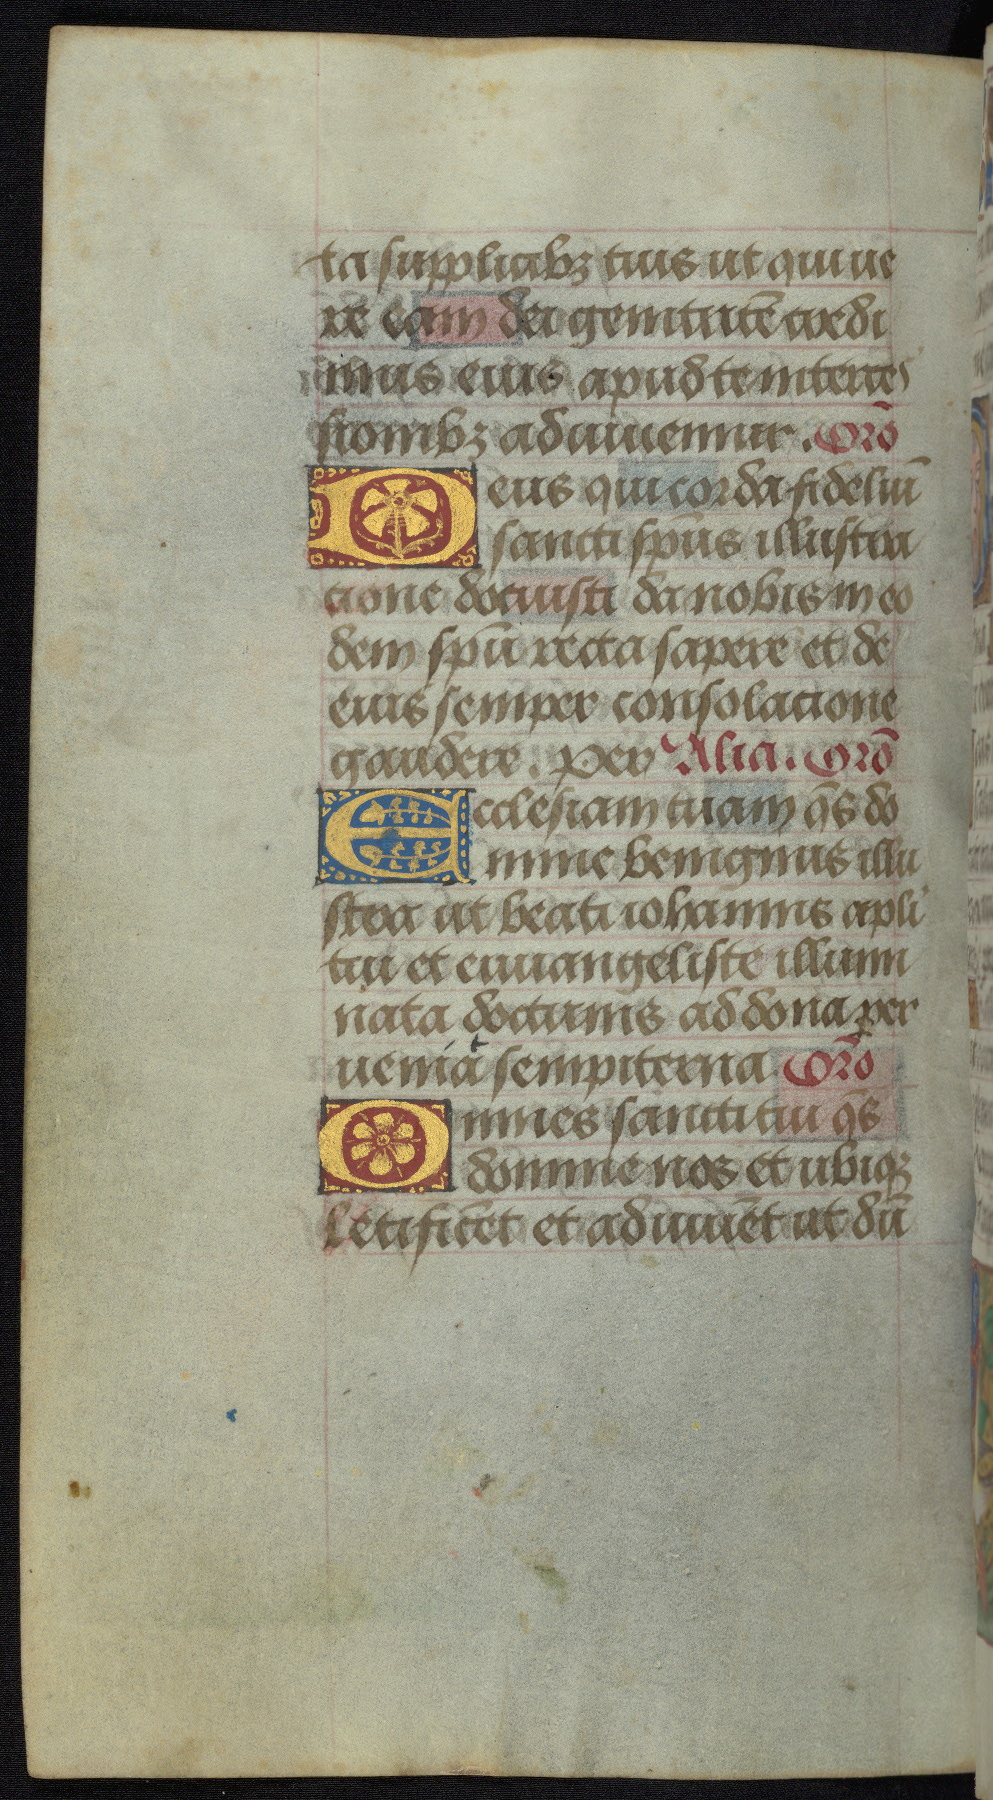 ta supplicibꝫ tuis ut qui ue
re eam dei genitricē credi
mus eius apud te interces
sionibꝫ adiuuemur. Orō
Deus qui corda fideliū
sancti sp̄us illustra
cione docuisti da nobis in eo
dem sp̄u recta sapere et de
eius semper consolacione
gaudere. Per Alia. Orō
Ecclesiam tuam q̄s do
mine benignus illu
stra ut beati iohannis apli
tui et euuangeliste illumi
nata doctrinis ad dona per
ueniat sempiterna. Orō
Omnes sancti tui q̄s
domine nos et ubiqꝫ
letificēt et adiuuēt ut dū